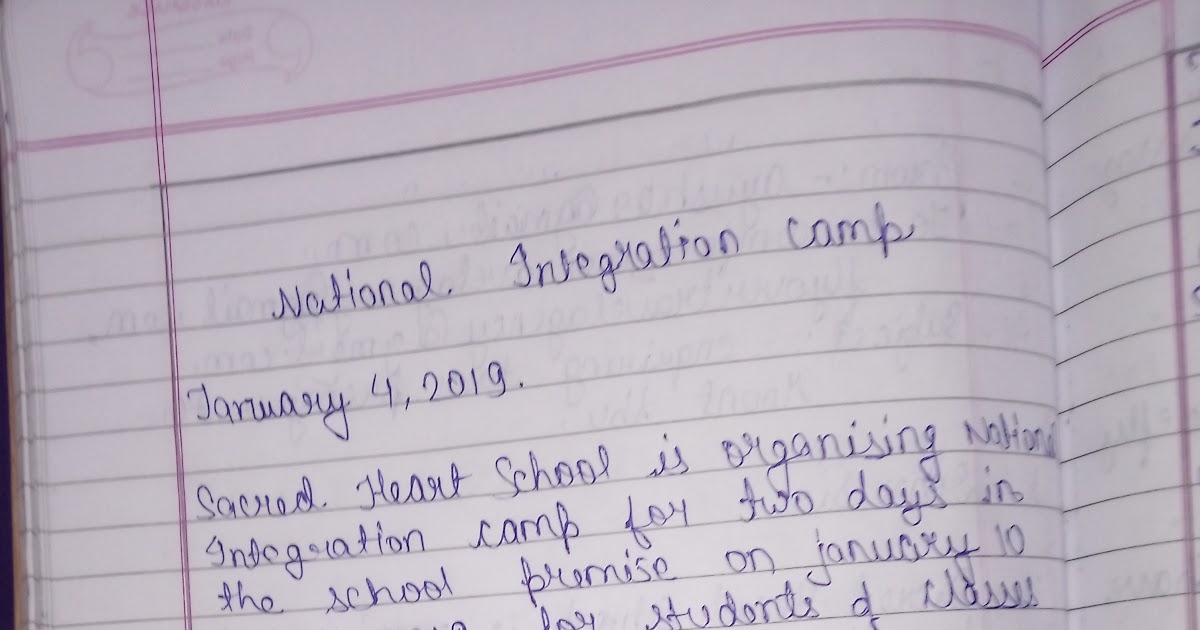 National. Integration camp
January 4, 2019.
Sacred. Heart School is organising National
Integration camp for two days in
the school premise on january 10
for students of classes